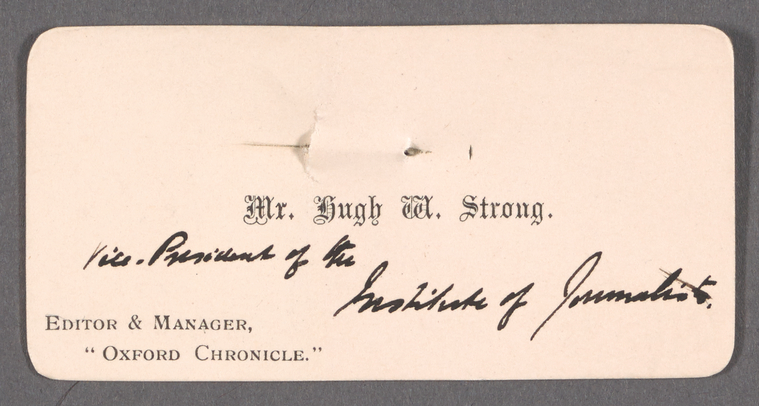 Mr. Hugh W. Strong.
Vice-President of the
Institute of Journalists.
EDITOR & MANAGER,
"OXFORD CHRONICLE."